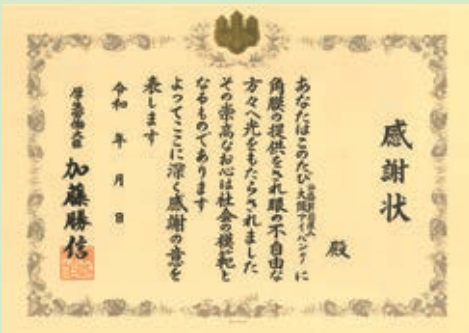 感謝状
殿
あなたはこのたび 大阪アイバンク に
角膜の提供をされ眼の不自由な
方々へ光をもたらされました
その崇高なお心は社会の模範と
なるものであります
よってここに深く感謝の意を
表します
令和 年 月 日
厚生労働大臣 加藤勝信